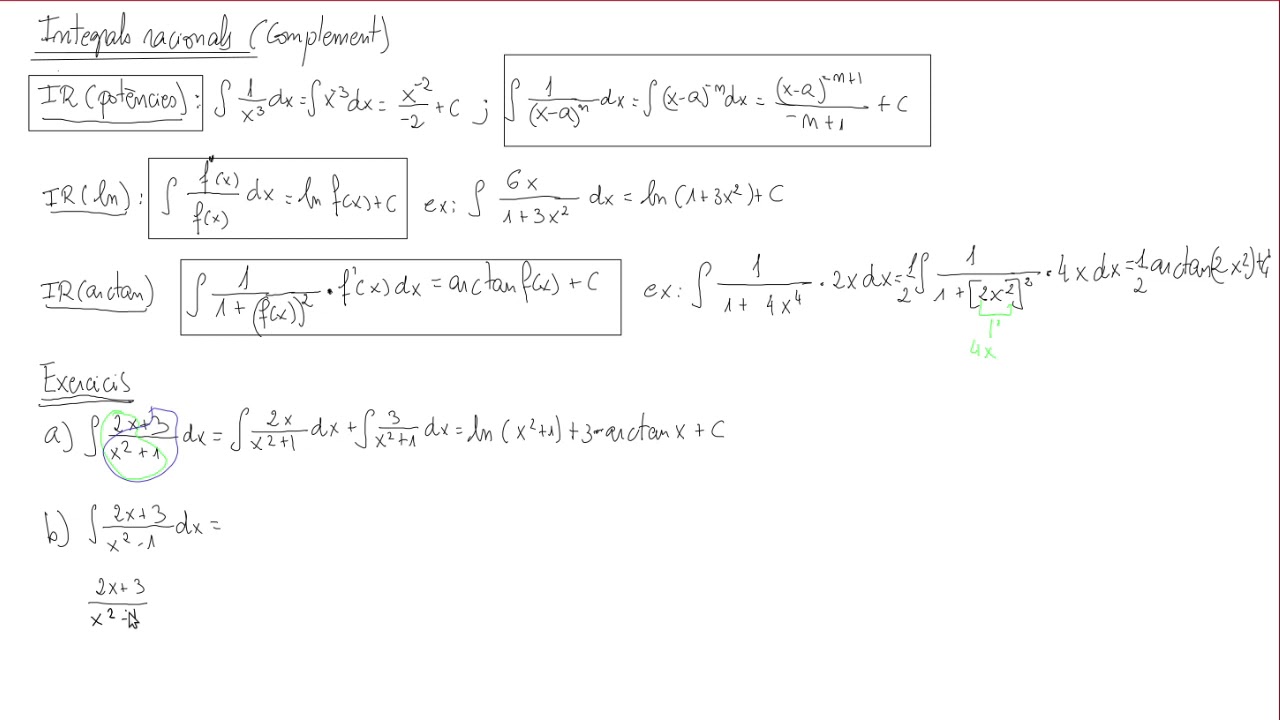 Integrals racionals (Complement)
IR (potències): ∫ 1/x³ dx = ∫ x⁻³ dx = x⁻²/-2 + C ; ∫ 1/(x-a)ⁿ dx = ∫ (x-a)⁻ⁿ dx = (x-a)⁻ⁿ⁺¹/-n+1 + C
IR (ln): ∫ f'(x)/f(x) dx = ln f(x) + C ex: ∫ 6x/1+3x² dx = ln (1+3x²) + C
IR (arctan) ∫ 1/1+(f(x))² · f'(x) dx = arctan f(x) + C ex: ∫ 1/1+4x⁴ · 2x dx = 1/2 ∫ 1/1+[2x²]² · 4x dx = 1/2 arctan(2x²)+C
4x
Exercicis
a) ∫ 2x+3/x²+1 dx = ∫ 2x/x²+1 dx + ∫ 3/x²+1 dx = ln (x²+1) + 3·arctan x + C
b) ∫ 2x+3/x²-1 dx =
2x+3/x²-1